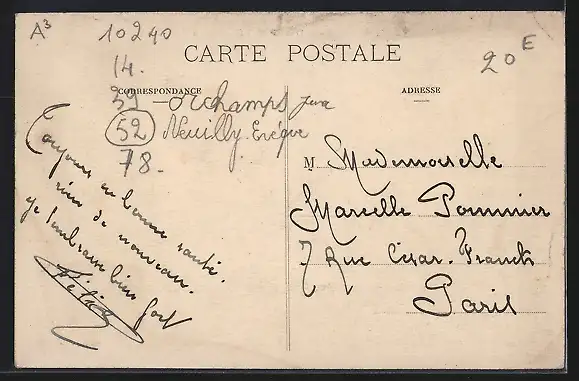 A³
10240
20 E
CARTE POSTALE
14.
CORRESPONDANCE
ADRESSE
39 - Orchamps Jura
52 Neuilly-Evêque
78.
Toujours en bonne santé.
rien de nouveau.
je t'embrasse bien fort
M Mademoiselle
Marcelle Pommier
7 Rue César-Franck
Paris